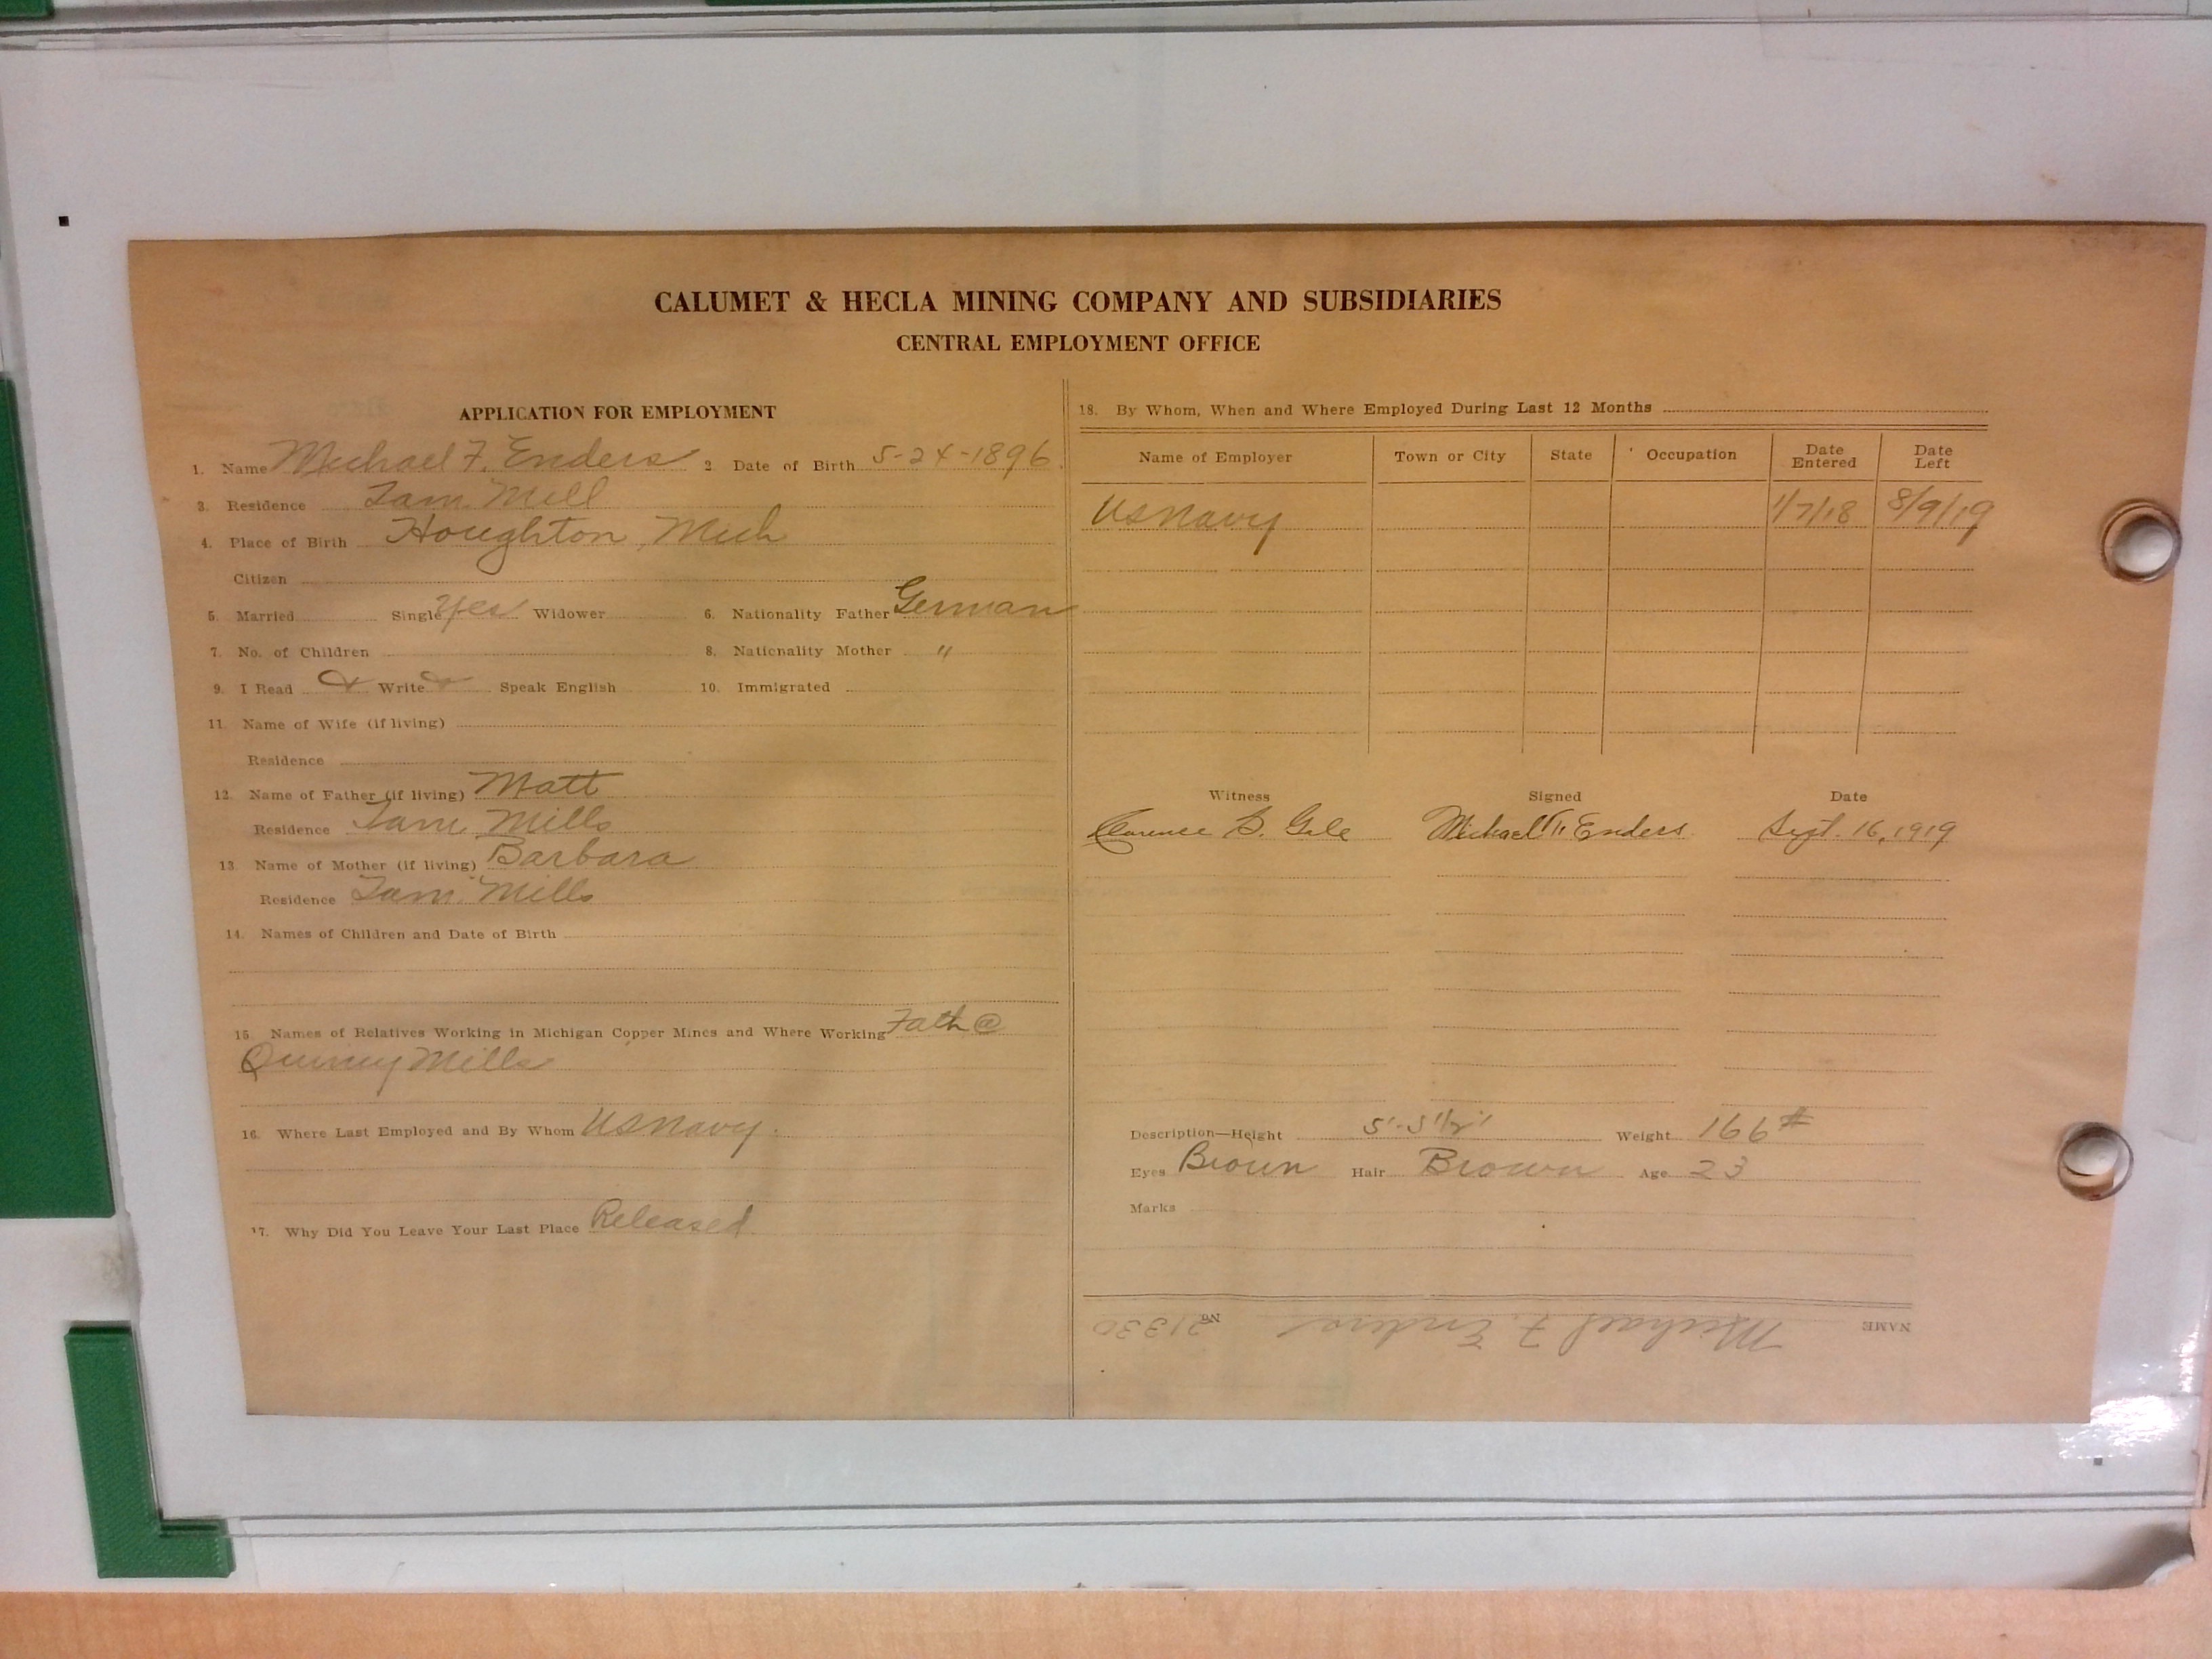 CALUMET & HECLA MINING COMPANY AND SUBSIDIARIES
CENTRAL EMPLOYMENT OFFICE
APPLICATION FOR EMPLOYMENT
1. Name Michael F. Enders 2. Date of Birth 5-24-1896
3. Residence Tam. Mill
4. Place of Birth Houghton, Mich
Citizen
5. Married Single Yes Widower 6. Nationality Father German
7. No. of Children 8. Nationality Mother "
9. I Read Write Speak English 10. Immigrated
11. Name of Wife (if living)
Residence
12. Name of Father (if living) Matt
Residence Tam. Mills
13. Name of Mother (if living) Barbara
Residence Tam. Mills
14. Names of Children and Date of Birth
15. Names of Relatives Working in Michigan Copper Mines and Where Working Fath @
Quincy Mills
16. Where Last Employed and By Whom US Navy.
17. Why Did You Leave Your Last Place Released
18. By Whom, When and Where Employed During Last 12 Months
Name of Employer Town or City State Occupation Date Entered Date Left
US Navy 1/7/18 8/9/19
Witness Signed Date
Clarence B. Gale Michael F. Enders Sept. 16, 1919
Description—Height 5'-5 1/2" Weight 166#
Eyes Brown Hair Brown Age 23
Marks
NAME Michael F. Enders No. 21330